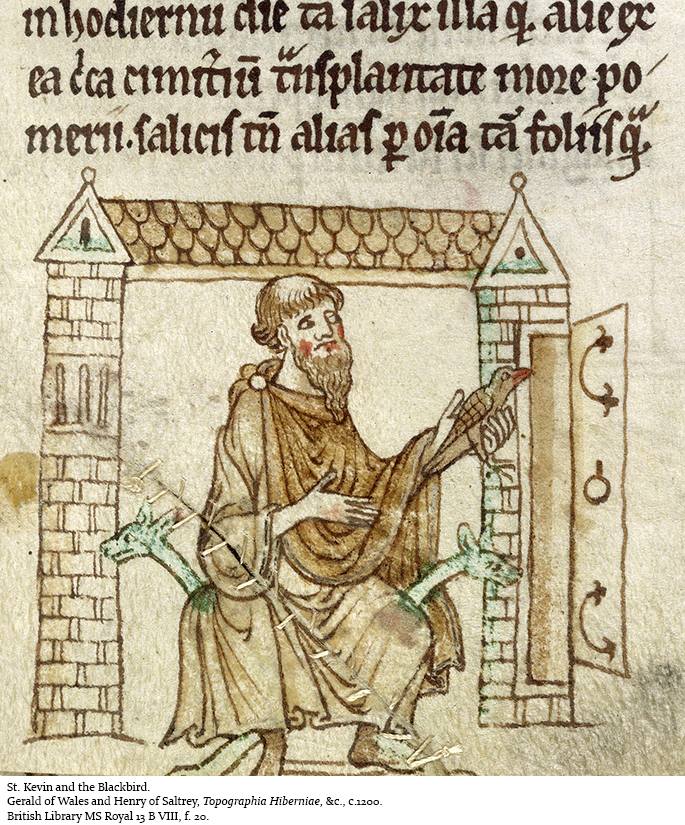 in hodiernu die ta salix illa q̃ alie ex
ea c̄ca cimit̄iū t̃nsplantate more po
merii. salicis tn̄ alias ꝑ oīa tā foliis q̃
St. Kevin and the Blackbird.
Gerald of Wales and Henry of Saltrey, Topographia Hiberniae, &c., c.1200.
British Library MS Royal 13 B VIII, f. 20.